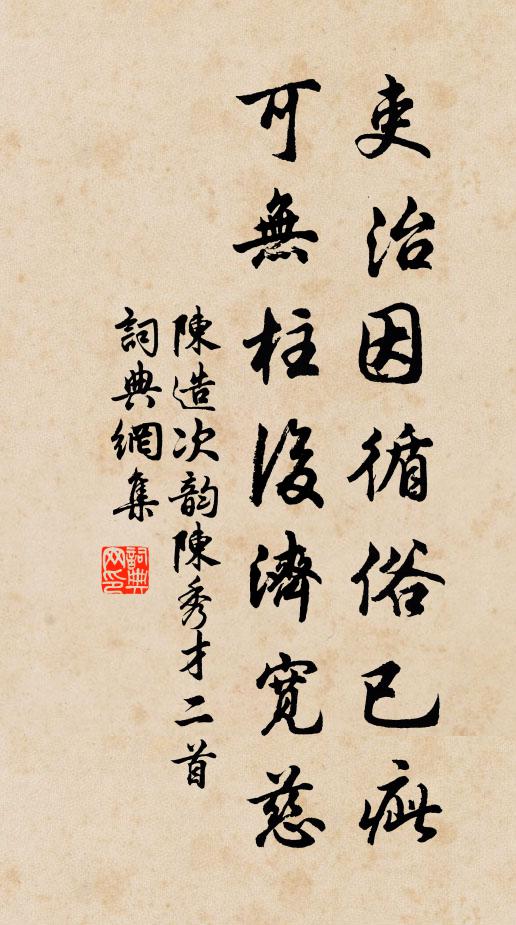 吏治因循俗已疵
可無柱後濟寬慈
陳造次韵陳秀才二首
詞典網集
詞典网印